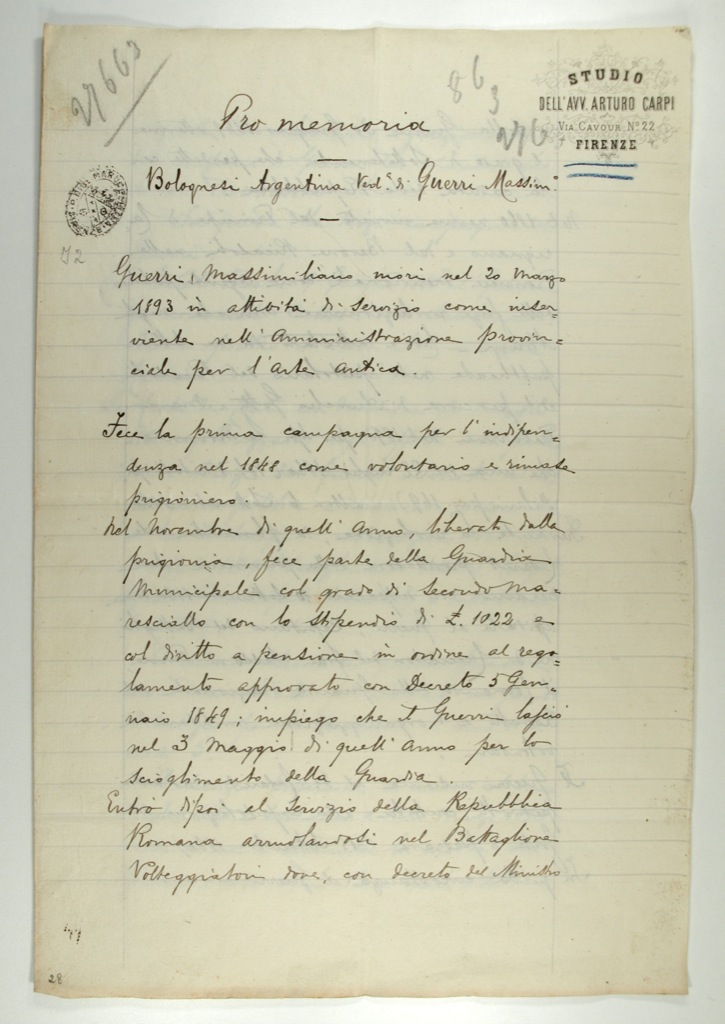 27663
863
276
STUDIO
DELL'AVV. ARTURO CARPI
VIA CAVOUR Nº 22
FIRENZE
Pro memoria
Bolognesi Argentina Ved.ª di Guerri Massim.º
J2
Guerri, Massimiliano morì nel 20 Marzo
1893 in attività di servizio come inser-
viente nell'Amministrazione provin-
ciale per l'Arte Antica.
Fece la prima campagna per l'indipen-
denza nel 1848 come volontario e rimase
prigioniero.
Nel Novembre di quell'Anno, liberato dalla
prigionia, fece parte della Guardia
Municipale col grado di secondo Ma-
resciallo con lo stipendio di £. 1022 e
col diritto a pensione in ordine al rego-
lamento approvato con Decreto 5 Gen-
naio 1849; impiego che il Guerri lasciò
nel 3 Maggio di quell'Anno per lo
scioglimento della Guardia.
Entrò dipoi al servizio della Repubblica
Romana arruolandosi nel Battaglione
Volteggiatori dove, con decreto del Ministro
28